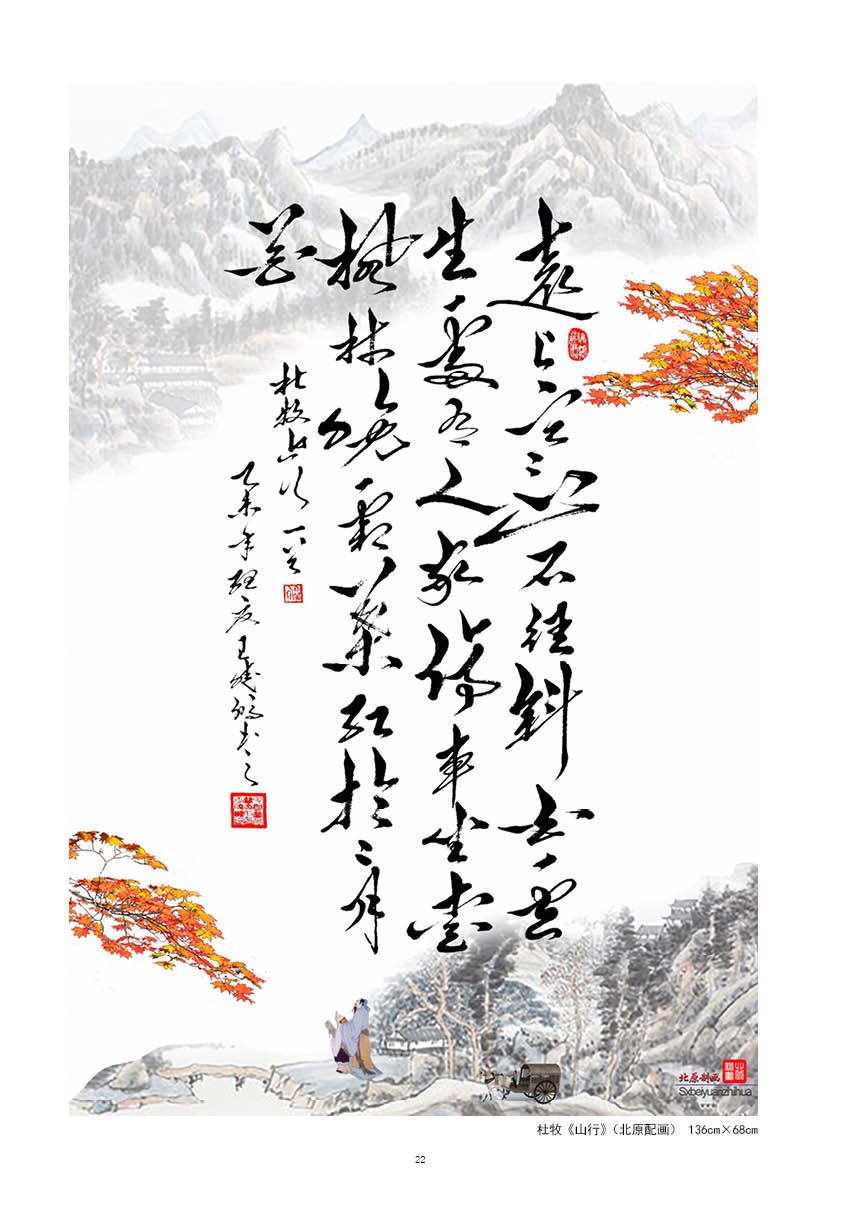 遠上寒山石徑斜白雲
生處有人家停車坐愛
楓林晚霜葉紅於二月
花
杜牧山行一首
乙未年书之
北原制画
Sxbeiyuanzhihua
杜牧《山行》(北原配画) 136cm×68cm
22